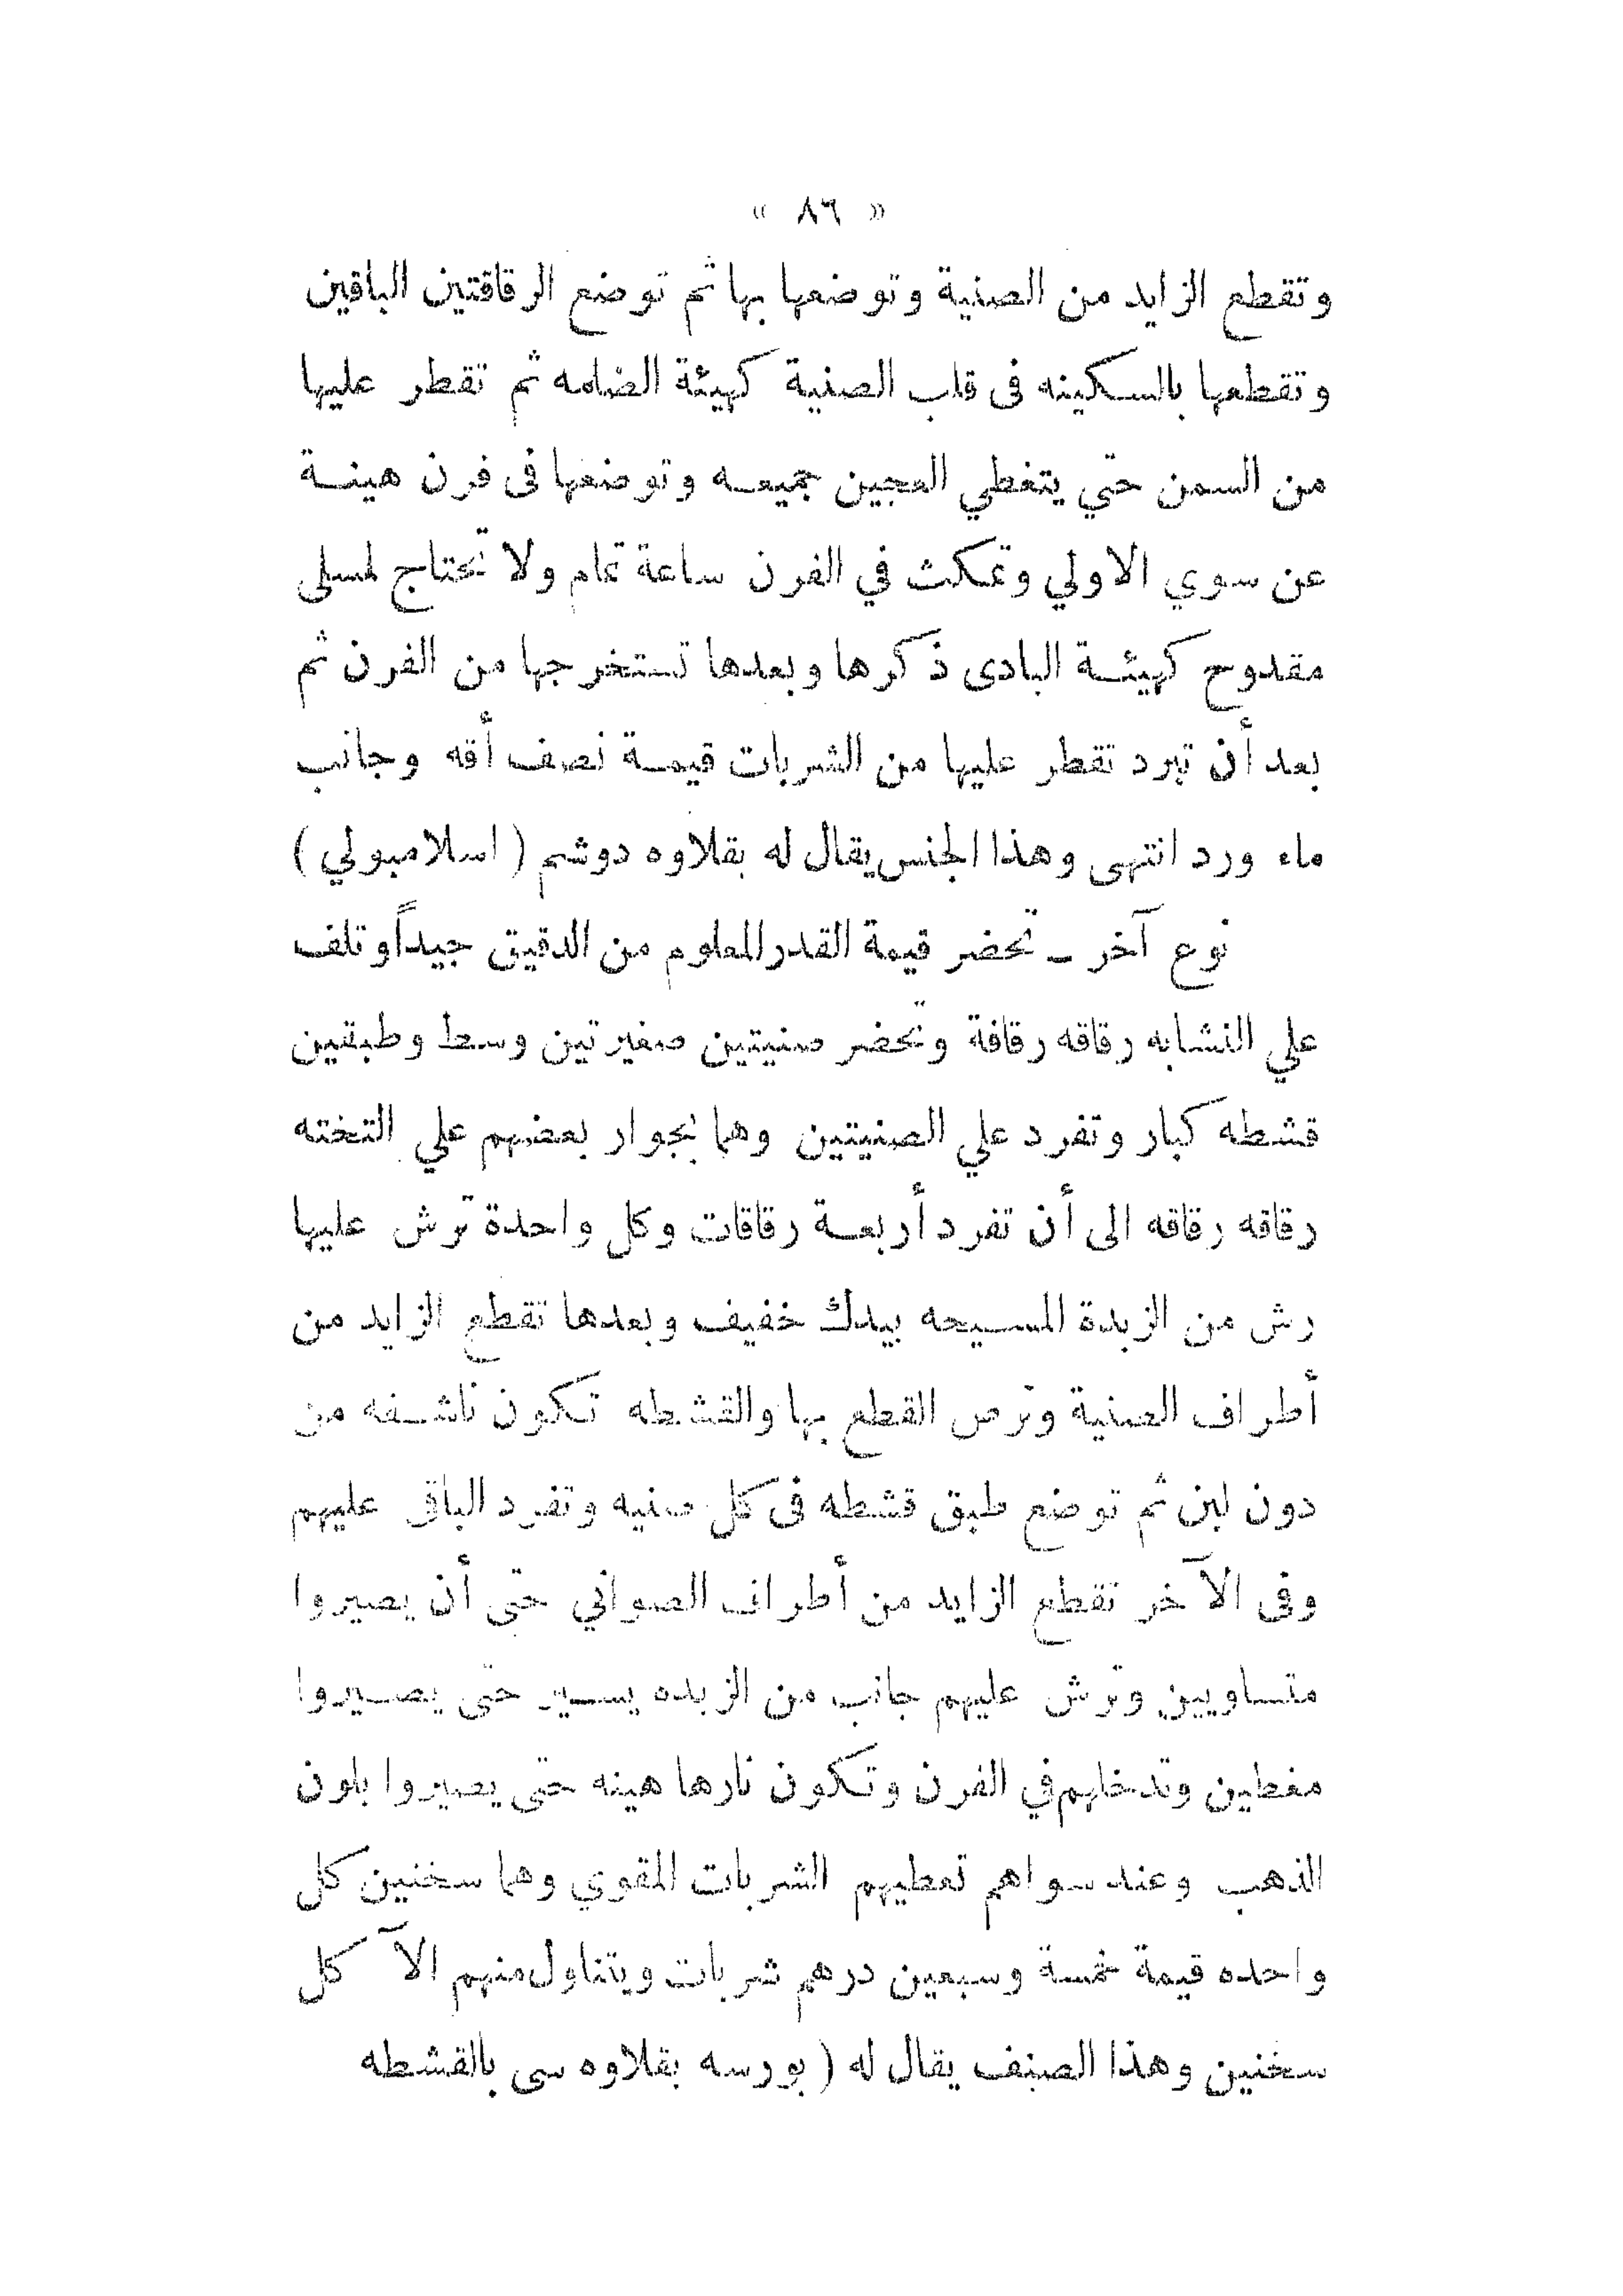 « ٨٦ »
وتقطع الزايد من الصنية وتوضعها بها ثم توضع الرقاقتين الباقين
وتقطعها بالسكينه فى قلب الصنية كهيئة الضامه ثم تقطر عليها
من السمن حتي يتغطي العجين جميعه وتوضعها فى فرن هينة
عن سوي الاولي وتمكث في الفرن ساعة تمام ولا تحتاج لمسلى
مقدوح كهيئة البادى ذكرها وبعدها تستخرجها من الفرن ثم
بعد أن تبرد تقطر عليها من الشربات قيمة نصف أقه وجانب
ماء ورد انتهى وهذا الجنس يقال له بقلاوه دوشم ( اسلامبولي )
نوع آخر ـ تحضر قيمة القدر المعلوم من الدقيق جيداً وتلف
علي النشابه رقاقه رقاقة وتحضر صنيتين صغيرتين وسط وطبقين
قشطه كبار وتفرد علي الصنيتين وهما بجوار بعضهم علي التخته
رقاقه رقاقه الى أن تفرد أربعة رقاقات وكل واحدة ترش عليها
رش من الزبدة المسيحه بيدك خفيف وبعدها تقطع الزايد من
أطراف الصنية وترص القطع بها والقشطه تكون ناشفه من
دون لبن ثم توضع طبق قشطه فى كل صنيه وتفرد الباقى عليهم
وفى الآخر تقطع الزايد من أطراف الصواني حتى أن يصيروا
متساويين وترش عليهم جانب من الزبده يسير حتى يصيروا
مغطين وتدخلهم في الفرن وتكون نارها هينه حتى يصيروا بلون
الذهب وعند سواهم تعطيهم الشربات المقوي وهما سخنين كل
واحده قيمة خمسة وسبعين درهم شربات ويتناول منهم الآكل
سخنين وهذا الصنف يقال له ( بورسه بقلاوه سى بالقشطه